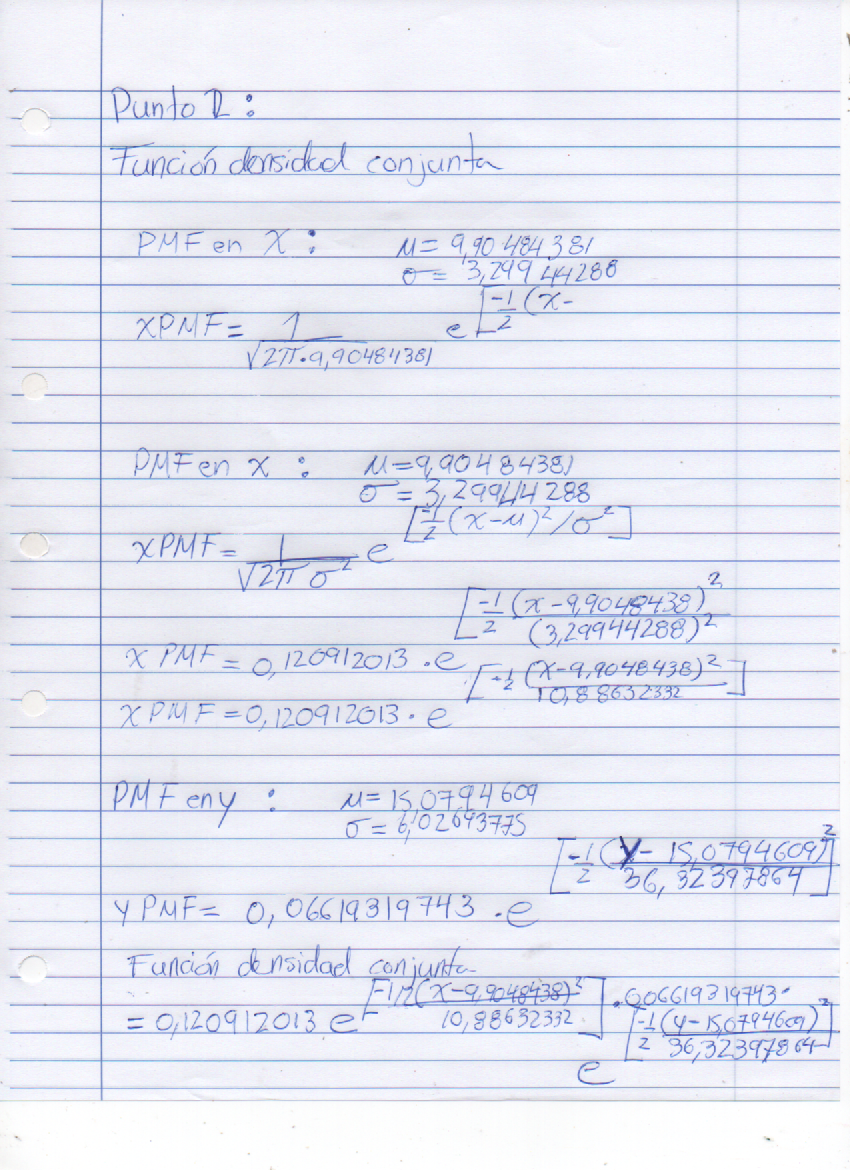 Punto 2:
Función densidad conjunta
PMF en X: μ= 9,90484381
σ= 3,29944288
XPMF= 1/√2π·9,90484381 e [-1/2 (x-
PMF en X: μ=9,90484381
σ= 3,29944288
XPMF= 1/√2π σ² e [-1/2 (x-μ)²/σ²]
XPMF=0,120912013 ·e [-1/2 (x-9,9048438)²/(3,29944288)²
XPMF=0,120912013· e [-1/2 (x-9,9048438)²/10,88632332]
PMF en y: μ= 15,0794609
σ= 6,02693775
YPMF= 0,06619319743 ·e [-1/2 (y- 15,0794609)²/36,32397864]
Función densidad conjunta
= 0,120912013 e [-1/2(x-9,9048438)²/10,88632332] ·0,06619319743· e [-1/2 (y-15,0794609)²/36,32397864]